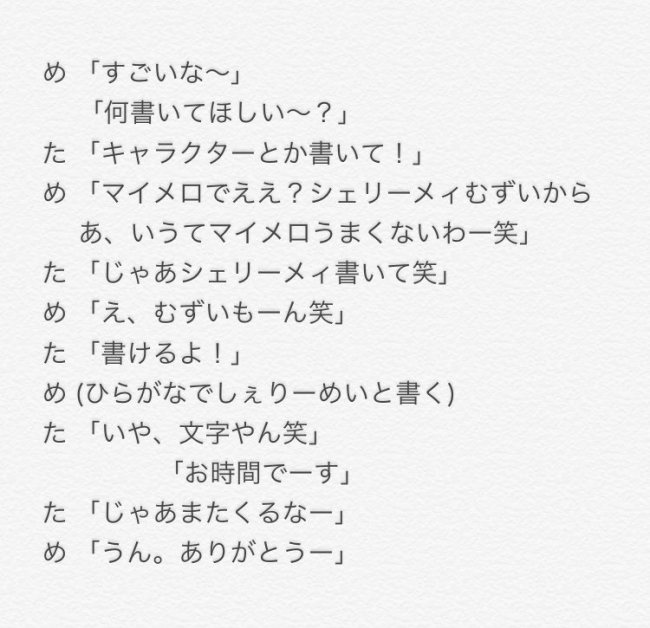 め 「すごいな〜」
「何書いてほしい〜？」
た 「キャラクターとか書いて！」
め 「マイメロでええ？シェリーメィむずいから
あ、いうてマイメロうまくないわー笑」
た 「じゃあシェリーメィ書いて笑」
め 「え、むずいもーん笑」
た 「書けるよ！」
め (ひらがなでしぇりーめいと書く)
た 「いや、文字やん笑」
「お時間でーす」
た 「じゃあまたくるなー」
め 「うん。ありがとうー」